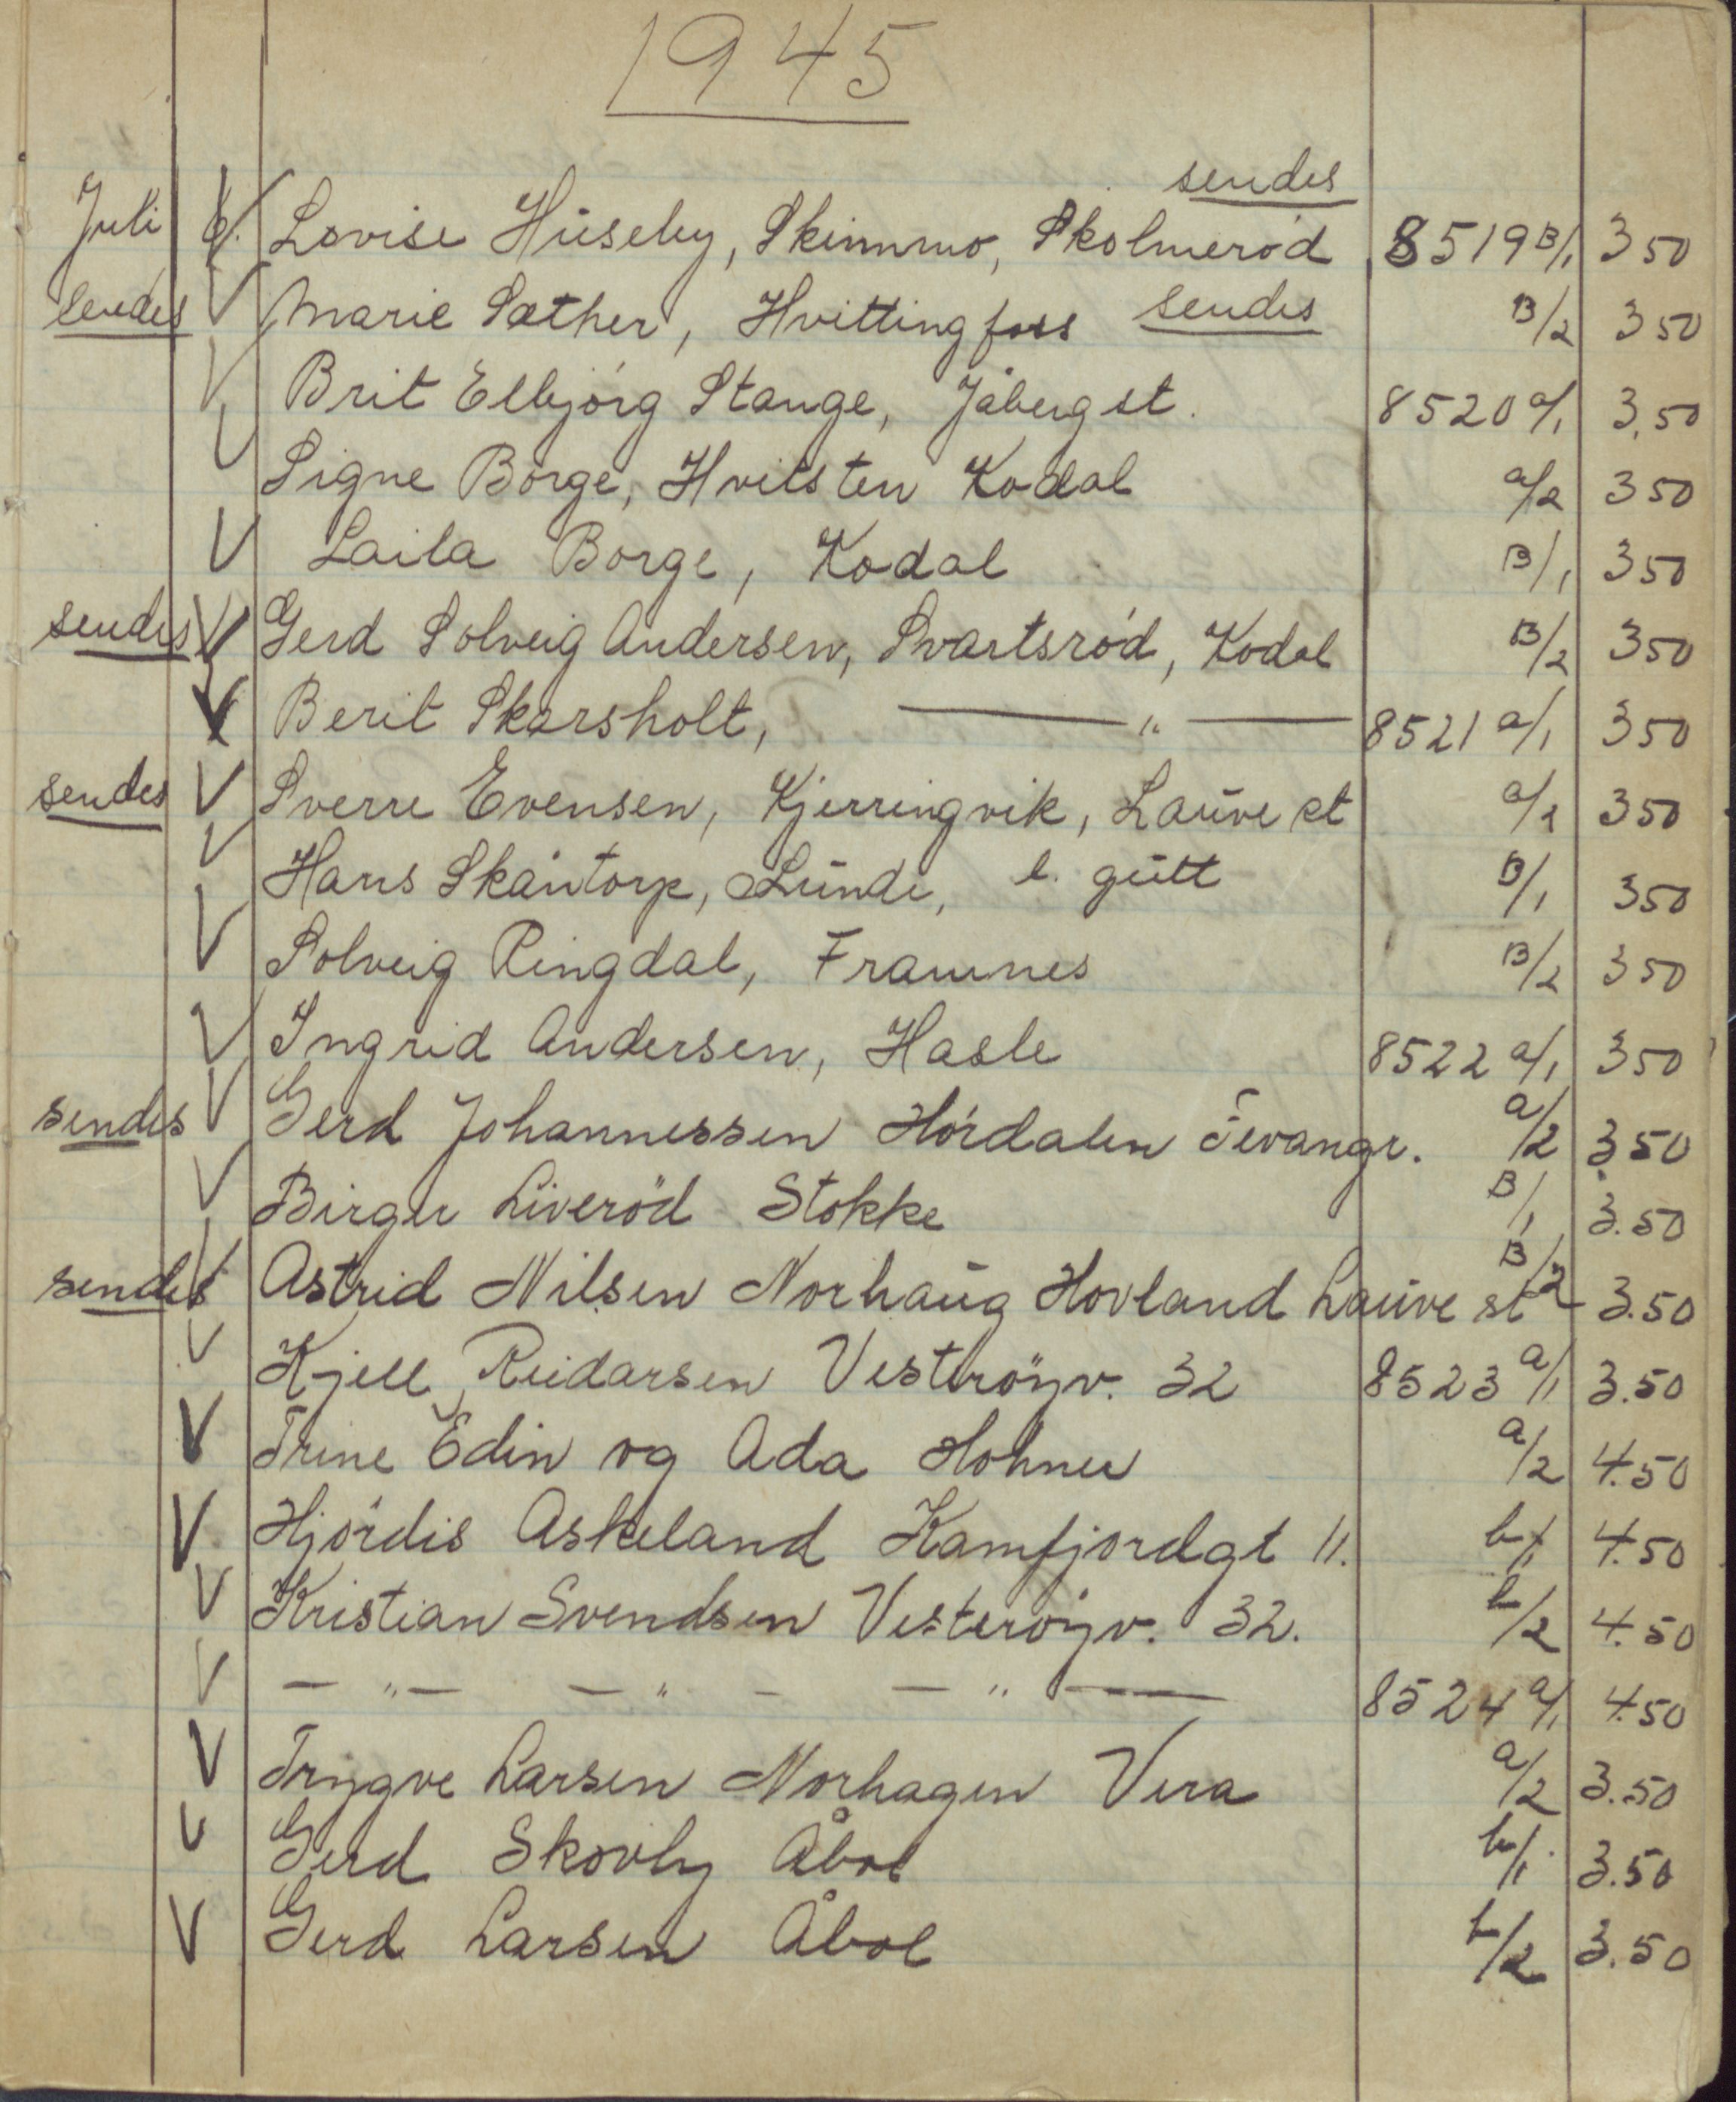 1945
sendes
Juli 6. Lovise Huseby, Skinmo, Skolmerød 8519 B/1 3 50
sendes V Marie Sæther, Hvittingfoss sendes B/2 3 50
V Brit Elbjørg Stange, Jåberg st. 8520 a/1 3,50
V Signe Borge, Hvitsten Kodal a/2 3 50
V Laila Borge, Kodal B/1 3 50
sendes V Gerd Solveig Andersen, Svartsrød, Kodal B/2 3 50
V Berit Skarsholt, — " — 8521 a/1 3 50
sendes V Sverre Evensen, Kjerringvik, Lauve st a/2 3 50
V Hans Skåntorp, Lunde, l. gutt B/1 3 50
V Solveig Ringdal, Framnes B/2 3 50
V Ingrid Andersen, Hasle 8522 a/1 3 50
sendes V Gerd Johannessen Hørdalen Fevangr. a/2 3 50
V Birger Liverød Stokke B/1 3.50
sendes V Astrid Nilsen Norhaug Hovland Lauve st B/2 3.50
V Kjell Reidarsen Vesterøyv. 32 8523 a/1 3.50
V Trine Edin og Ada Hohner a/2 4.50
V Hjørdis Askeland Kamfjordgt 11. b/1 4.50
V Kristian Svendsen Vesterøyv. 32. b/2 4.50
V — " — — " — — " — 8524 a/1 4.50
V Trygve Larsen Norhagen Vera a/2 3.50
V Gerd Skovly Åbol b/1 3.50
V Gerd Larsen Åbol b/2 3.50